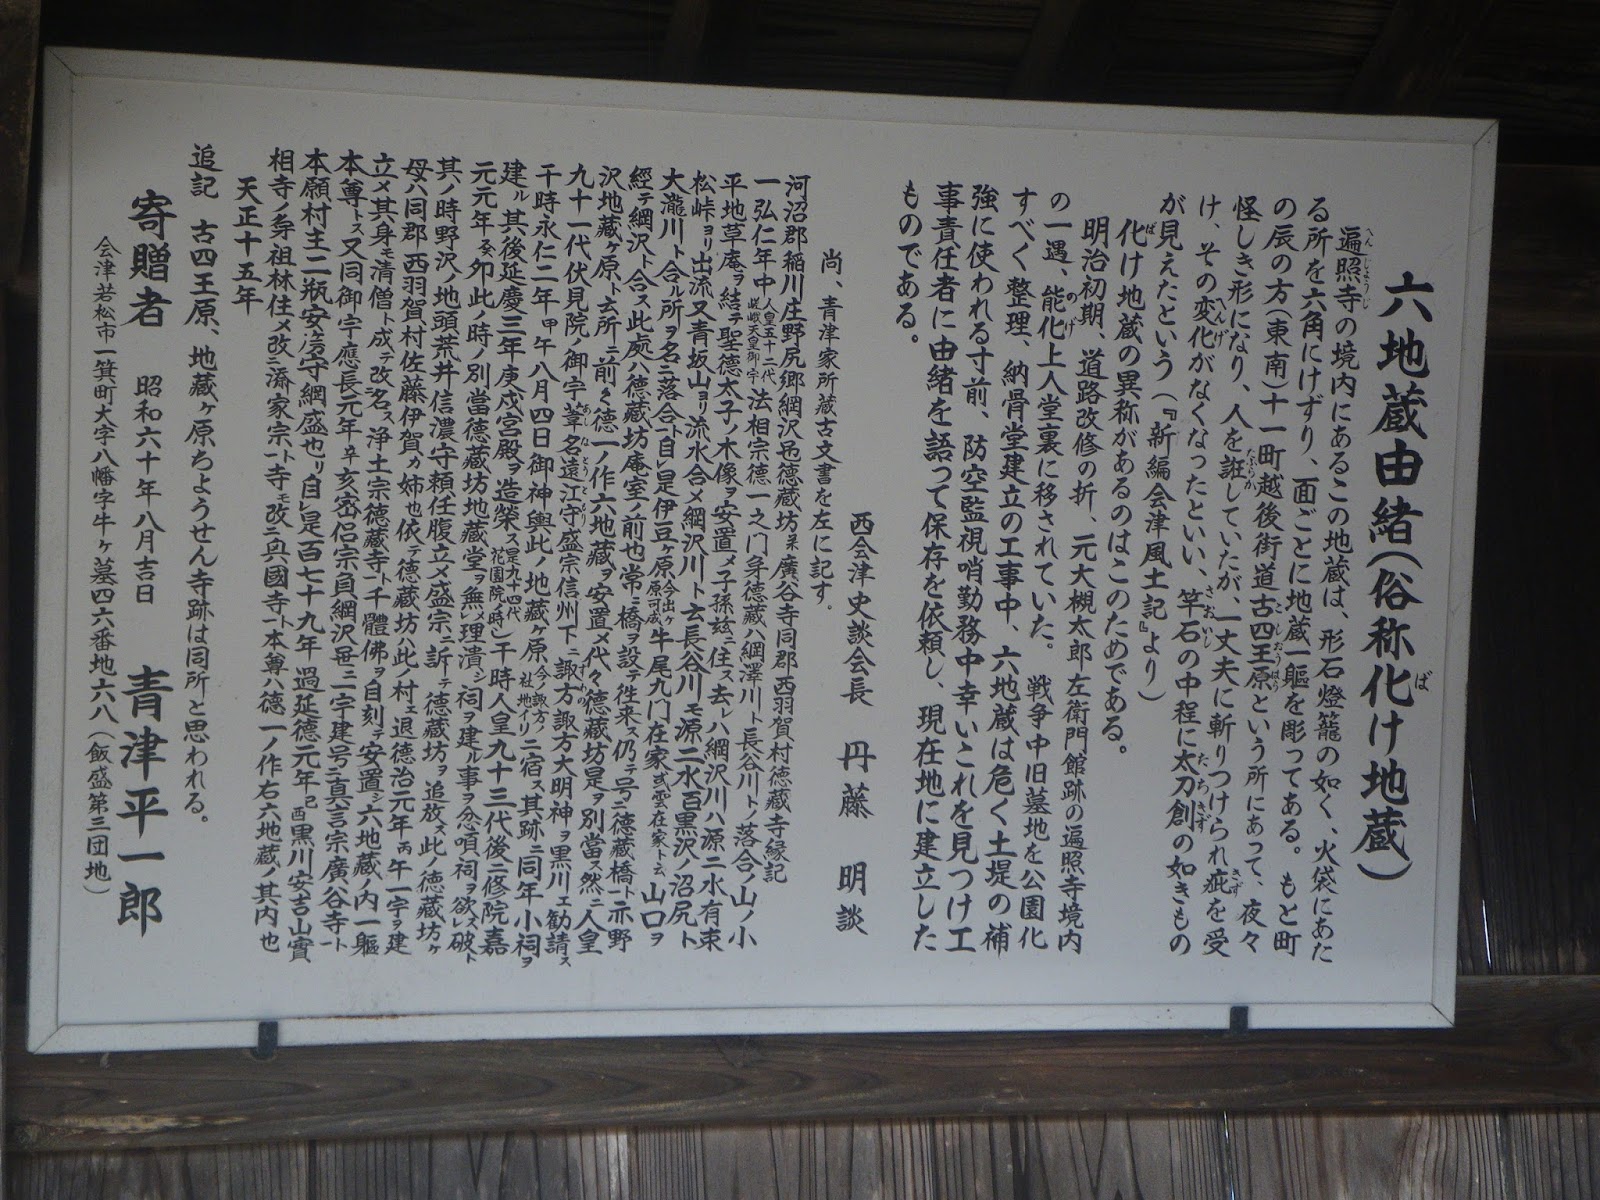 六地蔵由緒(俗称化け地蔵)
遍照寺の境内にあるこの地蔵は、形石燈籠の如く、火袋にあた
る所を六角にけずり、面ごとに地蔵一軀を彫ってある。もと町
の辰の方(東南)十一町越後街道古四王原という所にあって、夜々
怪しき形になり、人を誑していたが、一丈夫に斬りつけられ疵を受
け、その変化がなくなったといい、竿石の中程に太刀創の如きもの
が見えたという(『新編会津風土記』より)
化け地蔵の異称があるのはこのためである。
明治初期、道路改修の折、元大槻太郎左衛門館跡の遍照寺境内
の一遇、能化上人堂裏に移されていた。戦争中旧墓地を公園化
すべく整理、納骨堂建立の工事中、六地蔵は危く土堤の補
強に使われる寸前、防空監視哨勤務中幸いこれを見つけ工
事責任者に由緒を語って保存を依頼し、現在地に建立した
ものである。
西会津史談会長 丹藤 明談
尚、青津家所蔵古文書を左に記す。
河沼郡稲川庄野尻郷綱沢邑徳蔵坊 廣谷寺同郡西羽賀村徳蔵寺縁記
一弘仁年中人皇五十二代嵯峨天皇御宇法相宗徳一之門弟徳蔵ハ綱澤川ト長谷川トノ落合ノ山ノ小
平地草庵ヲ結テ聖徳太子ノ木像ヲ安置メ子孫茲ニ住ス去レハ綱沢川ハ源二水有束
松峠ヨリ出流又青坂山ヨリ流水合メ綱沢川ト云長谷川モ源二水百黒沢ノ沼尻ト
大瀧川ト合ル所ヲ名ニ落合ト自レ是伊豆ヶ原 牛尾九門在家 山口ヲ
經テ綱沢ト合ス此処ハ徳蔵坊庵室ノ前也常ニ橋ヲ設テ往来ス仍テ号ニ徳蔵橋ト亦野
沢地蔵ヶ原ト云所ニ前ク徳一ノ作六地蔵ヲ安置メ代々徳蔵坊是ヲ別當ス然ニ人皇
九十一代伏見院ノ御宇葦名遠江守盛宗信州下ニ諏方諏方大明神ヲ黒川エ勧請ス
干時永仁二年甲午八月四日御神輿此ノ地蔵ヶ原 ニ宿ス其跡ニ同年小祠ヲ
建ル其後延慶三年庚戌宮殿ヲ造榮ス是九十四代花園院ノ時干時人皇九十三代後二修院嘉
元元年癸卯此ノ時ノ別當徳蔵坊地蔵堂ヲ無ノ理潰シ祠ヲ建ル事ヲ忿唄祠ヲ欲レ破ト
其ノ時野沢ノ地頭荒井信濃守頼任腹立メ盛宗ニ訴テ徳蔵坊ヲ追放ス此ノ徳蔵坊ヶ
母ハ同郡西羽賀村佐藤伊賀カ姉也依テ徳蔵坊此ノ村エ退徳治元年丙午一宇ヲ建
立メ其身モ清僧ト成テ改名ス浄土宗徳蔵寺ト千體佛ヲ自刻テ安置シ六地蔵ノ内一軀
本尊トス又同御宇應長元年辛亥密侶宗貟綱沢邑ニ一宇建号ニ真言宗廣谷寺ト
本願村主二瓶安房守綱盛也自レ是百七十九年過延徳元年己酉黒川安吉山實
相寺ノ弟祖林住メ改ニ濟家宗ト寺モ改ニ興國寺ト本尊ハ徳一ノ作右六地蔵ノ其内也
天正十五年
追記 古四王原、地蔵ヶ原ちようせん寺跡は同所と思われる。
寄贈者 昭和六十年八月吉日 青津平一郎
会津若松市一箕町大字八幡字牛ヶ墓四六番地六八(飯盛第三団地)